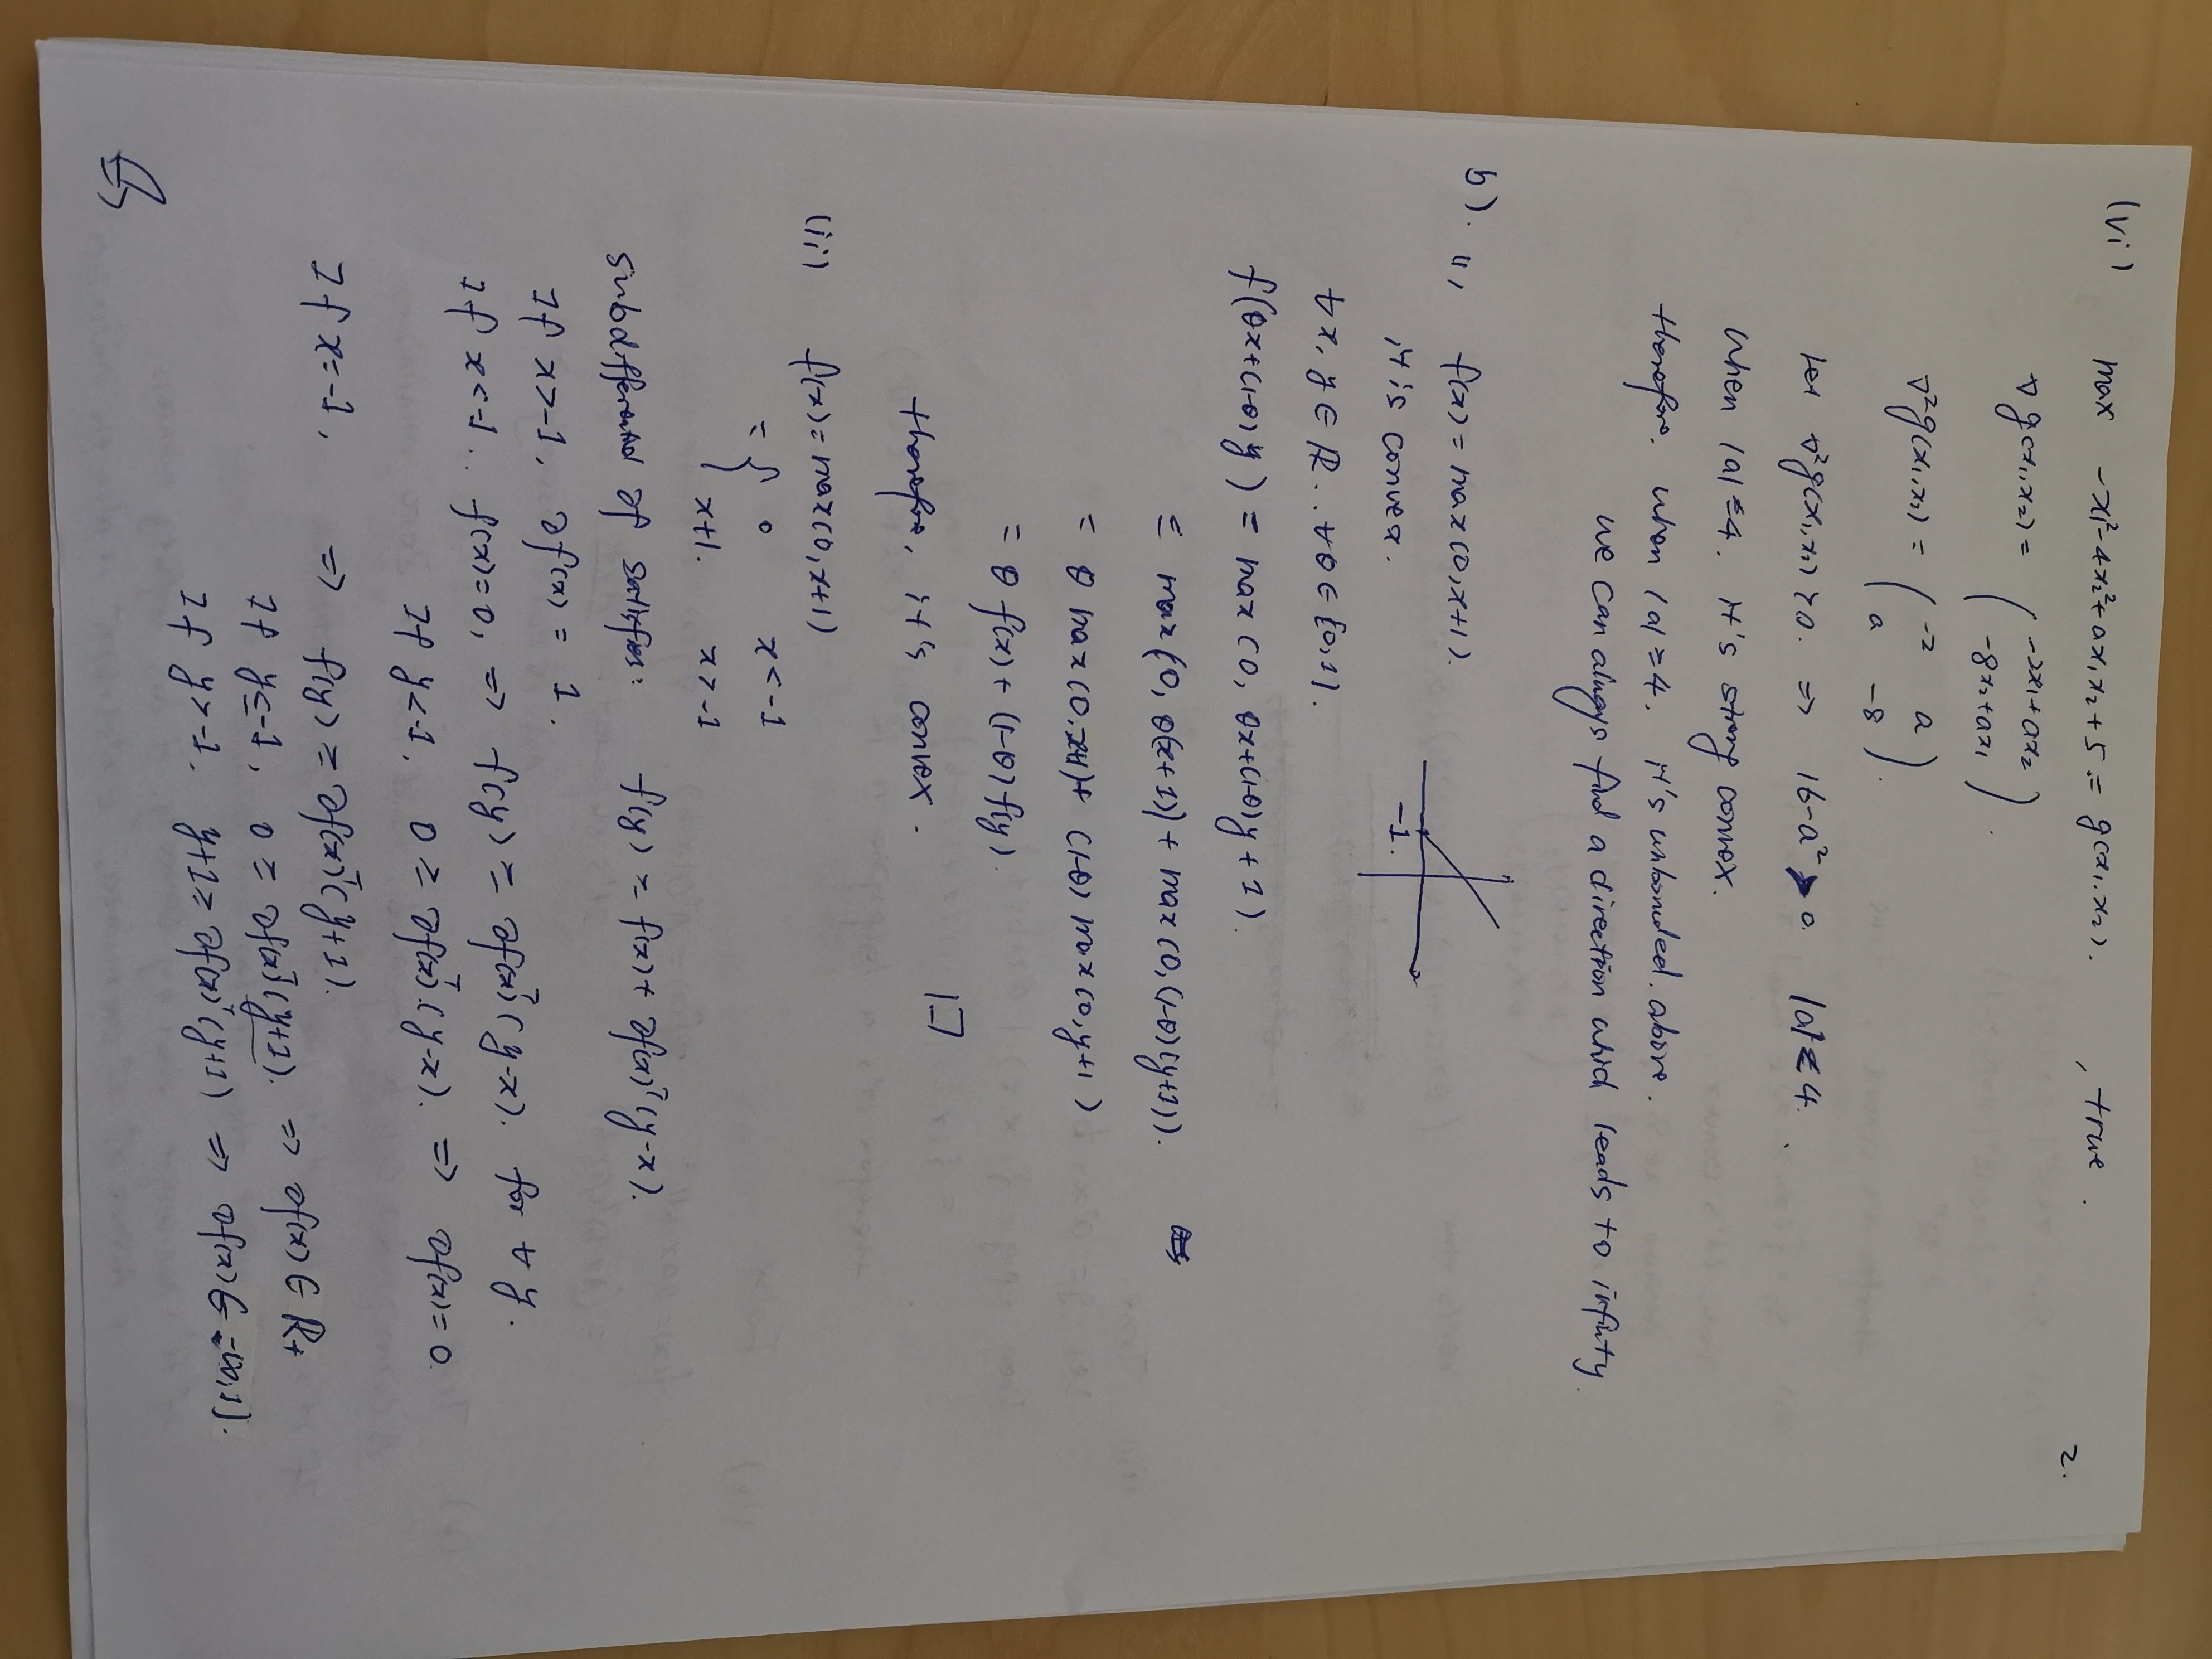 2.
(vi) max -x₁²-4x₂²+ax₁x₂+5 = g(x₁,x₂). , true.
∇g(x₁,x₂) = ( -2x₁+ax₂
-8x₂+ax₁ ).
∇²g(x₁,x₂) = ( -2 a
a -8 ).
let ∇²g(x₁,x₂) ≻0. ⇒ 16-a² > 0. |a| ≤ 4.
when |a| ≤ 4. it's strong convex.
therefore. when |a| = 4. it's unbounded. above.
we can always find a direction which leads to infinity.
b). i, f(x) = max(0,x+1).
it's convex.
-1.
∀x, y ∈ ℝ. ∀θ∈[0,1].
f(θx+(1-θ)y) = max(0, θx+(1-θ)y+1).
≤ max(0, θ(x+1)) + max(0,(1-θ)(y+1)).
= θ max(0,x+1)+ (1-θ) max(0,y+1)
= θ f(x) + (1-θ) f(y).
therefore, it's convex. □
(ii) f(x) = max(0,x+1)
= { 0 x<-1
x+1. x>-1
subdifferential ∂f satisfies: f(y) ≥ f(x)+ ∂f(x)ᵀ(y-x).
If x>-1, ∂f(x) = 1.
If x<-1. f(x)=0, ⇒ f(y) ≥ ∂f(x)ᵀ(y-x). for ∀ y.
If y<-1, 0 ≥ ∂f(x)ᵀ(y-x). ⇒ ∂f(x)=0.
If x=-1, ⇒ f(y) ≥ ∂f(x)ᵀ(y+1).
If y≤-1, 0 ≥ ∂f(x)ᵀ(y+1). ⇒ ∂f(x) ∈ ℝ₊
If y>-1. y+1≥ ∂f(x)ᵀ(y+1) ⇒ ∂f(x)∈ -∞,1].